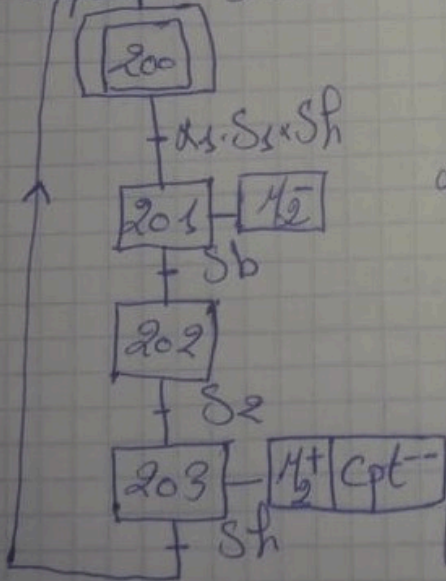 200
x1.S1.Sh
201 M2-
Sb
202
S2
203 M2+ Cpt--
Sh